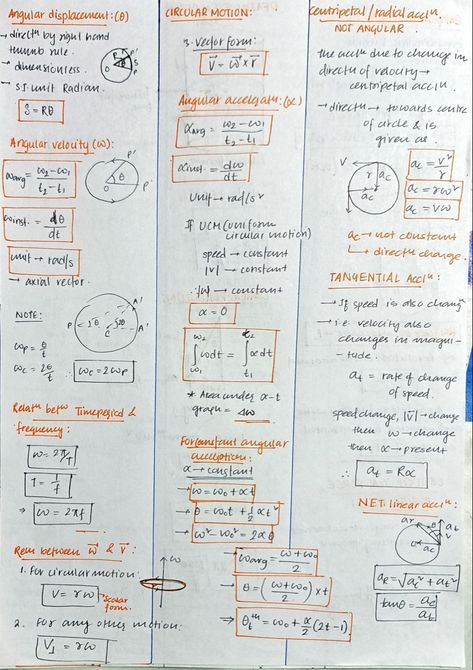 Angular displacement: (θ)
→ directⁿ by right hand
thumb rule.
→ dimensionless.
→ SI unit Radian.
S = Rθ
Angular velocity (ω):
ωavg = ω₂ - ω₁ / t₂ - t₁
ωinst. = dθ / dt
unit → rad/s
→ axial vector.
NOTE:
ωp = θ / t
ωc = 2θ / t
∴ ωc = 2ωp
Relatⁿ betⁿ Timeperiod &
frequency:
ω = 2π/T
T = 1/f
⇒ ω = 2πf
Relⁿ between ω⃗ & v⃗:
1. For circular motion:
V = rω → Scalar
form.
2. For any other motion:
V⊥ = rω
CIRCULAR MOTION:
3. Vector form:
V⃗ = ω⃗ × r⃗
Angular acceleratⁿ: (α)
αavg = ω₂ - ω₁ / t₂ - t₁
αinst. = dω / dt
Unit → rad/s²
If UCM (uniform
circular motion)
speed → constant
|V| → constant
∴ |ω| → constant
α = 0
ω₂ t₂
∫ωdt = ∫αdt
ω₁ t₁
* Area under α-t
graph = Δω
For constant angular
accelⁿ:
α → constant
→ ω = ω₀ + αt
→ θ = ω₀t + 1/2 αt²
→ ω² - ω₀² = 2αθ
→ ωavg = ω + ω₀ / 2
⇒ θ = (ω + ω₀ / 2) × t
⇒ θtᵗʰ = ω₀ + α/2 (2t-1)
Centripetal / radial acclⁿ
NOT ANGULAR.
The acclⁿ due to change in
directⁿ of velocity →
centripetal acclⁿ.
→ directⁿ → towards centre
of circle & is
given as.
ac = v² / r
ac = rω²
ac = vω
ac → not constant
↳ directⁿ change.
TANGENTIAL Acclⁿ:
→ If speed is also chang
→ i.e. velocity also
changes in magni-
tude.
at = rate of change
of speed.
speed change, |V| → change
then ω → change
then α → present
∴ at = Rα
NET linear acclⁿ:
aR = √ac² + at²